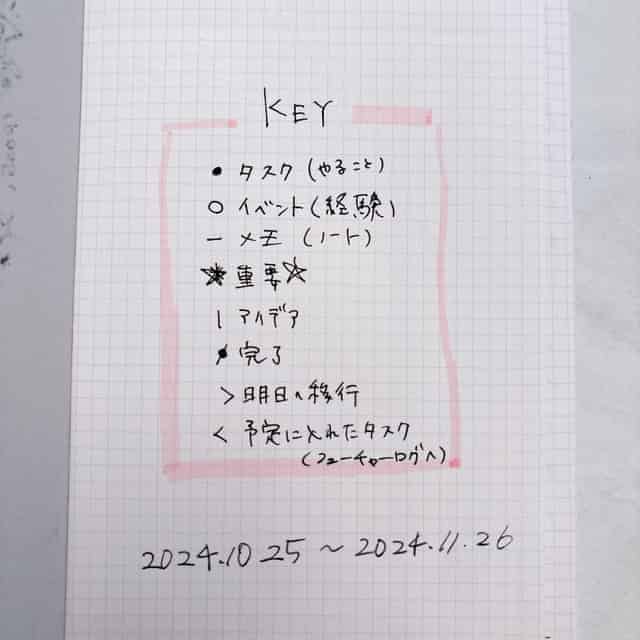 KEY
• タスク (やること)
○ イベント (経験)
— メモ (ノート)
★ 重要 ☆
| アイデア
完了
> 明日へ移行
< 予定に入れたタスク
(フューチャーログへ)
2024.10 25 ~ 2024.11.26